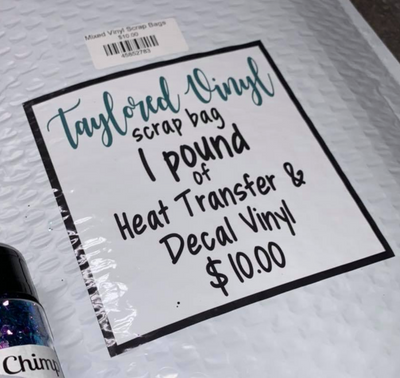 Mixed Vinyl Scrap Bags
$10.00
45652763
Taylored Vinyl
scrap bag
1 pound
of
Heat Transfer &
Decal Vinyl
$10.00